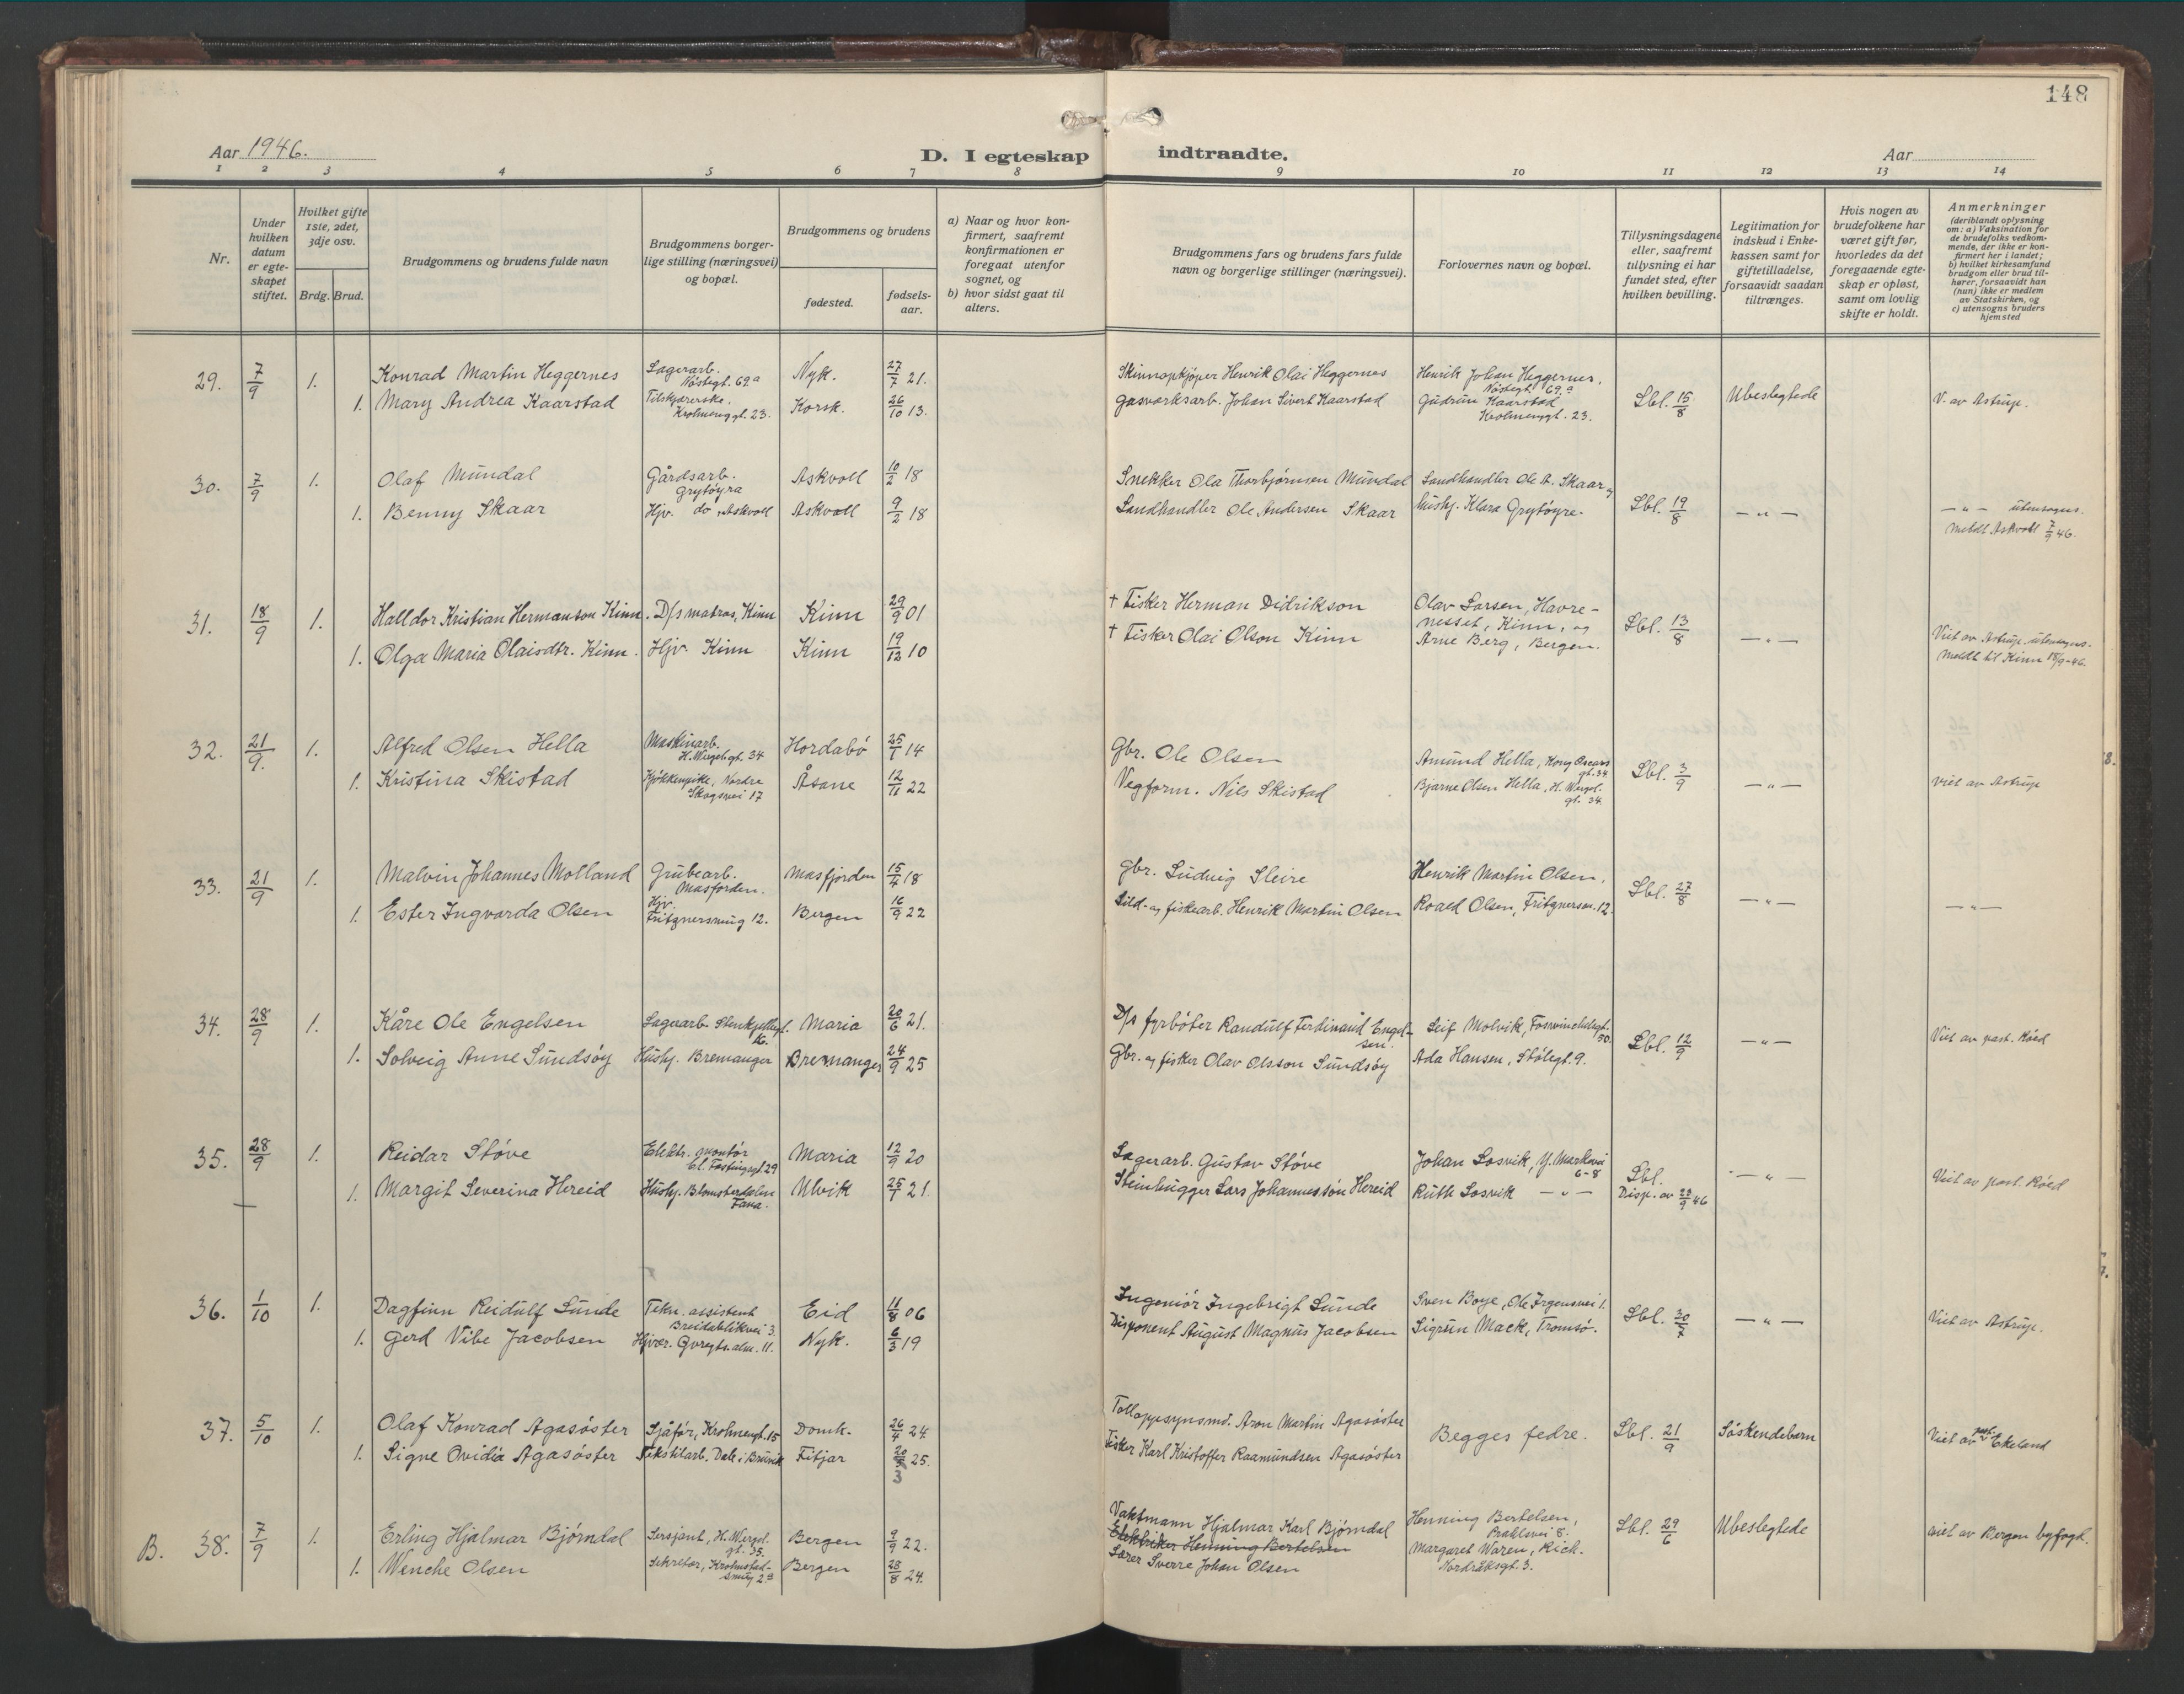 148
Aar 1946.
D. I egteskap indtraadte.
Aar
1 2 3 4 5 6 7 8 9 10 11 12 13 14
Nr.
Under hvilken datum er egteskapet stiftet.
Hvilket gifte 1ste, 2det, 3dje osv.
Brdg. Brud.
Brudgommens og brudens fulde navn
Brudgommens borgerlige stilling (næringsvei) og bopæl.
Brudgommens og brudens
fødested.
fødselsaar.
a) Naar og hvor konfirmert, saafremt konfirmationen er foregaat utenfor sognet, og
b) hvor sidst gaat til alters.
Brudgommens fars og brudens fars fulde navn og borgerlige stillinger (næringsvei).
Forlovernes navn og bopæl.
Tillysningsdagene eller, saafremt tillysning ei har fundet sted, efter hvilken bevilling.
Legitimation for indskud i Enkekassen samt for giftetilladelse, forsaavidt saadan tiltrænges.
Hvis nogen av brudefolkene har været gift før, hvorledes da det foregaaende egteskap er opløst, samt om lovlig skifte er holdt.
Anmerkninger
(deriblandt oplysning om: a) Vaksination for de brudefolks vedkommende, der ikke er konfirmert her i landet; b) hvilket kirkesamfund brudgom eller brud tilhører, forsaavidt han (hun) ikke er medlem av Statskirken, og c) utensogns bruders hjemsted
29. 7/9 1. Konrad Martin Heggernes Lagerarb. Nøstegt. 69a Nyk. 27/7 21. Skinnopkjøper Henrik Olai Heggernes Henrik Johan Heggernes, Nøstegt. 69a
1. Mary Andrea Kaarstad Tilskjærerske. Krohnenggt. 23. Korsk. 26/10 13. Gasverksarb. Johan Sivert Kaarstad Gudrun Kaarstad Krohnenggt. 23. Lbl. 15/8 Ubeslegtede V. av Astrup.
30. 7/9 1. Olaf Mundal Gårdsarb. Grytøyra Askvoll 10/2 18 Snekker Ola Thorbjørnsen Mundal Landhandler Ole A. Skaar og
1. Benny Skaar Hjv. do, Askvoll Askvoll 9/2 18 Landhandler Ole Andersen Skaar hushj. Klara Grytøyre. Lbl. 19/8 —"— —"— utensogns. Meldt Askvoll 7/9 46.
31. 18/9 1. Halldor Kristian Hermanson Kinn. D/s matros, Kinn Kinn 29/9 01 † Fisker Herman Didrikson Olav Larsen, Havrenesset, Kinn, og
1. Olga Maria Olaisdtr. Kinn. Hjv. Kinn Kinn 19/12 10 † Fisker Olai Olson Kinn Arne Berg, Bergen. Lbl. 13/8 —"— Viet av Astrup. utensogns. Meldt til Kinn 18/9-46.
32. 21/9. 1. Alfred Olsen Hella Maskinarb. H. Wergelsgt. 34 Hordabø 25/1 14 Gbr. Ole Olsen Amund Hella, Kong Oscars gt. 34.
1. Kristina Skistad Kjøkkenpike, Nordre Skogsvei 17 Åsane 12/11 22 Vegform. Nils Skistad Bjarne Olsen Hella, H. Wergel. gt. 34. Lbl. 3/9 —"— viet av Astrup
33. 21/9 1. Malvin Johannes Molland Grubearb. Masfjorden. Masfjorden 15/4 18 Gbr. Ludvig Sleire Henrik Martin Olsen,
1. Ester Ingvarda Olsen Hjv. Fritznersmug 12. Bergen 16/9 22 Sild- og fiskearb. Henrik Martin Olsen Roald Olsen, Fritznersm. 12. Lbl. 27/8 —"— —"—
34. 28/9 1. Kåre Ole Engelsen Lagerarb. Maria 20/6 21. D/s fyrbøter Randulf Ferdinand Engelsen. Leif Molvik, Fosswinckelsgt. 50.
1. Solveig Anne Sundsøy Hushj. Bremanger Bremanger 24/9 25 Gbr. og fisker Olav Olsson Sundsøy Ada Hansen, Stølegt. 9. Lbl. 12/9 —"— Viet av past. Røed
35. 28/9 1. Reidar Støve Elektr. montør Cl. Fastingsgt. 29 Maria 12/9 20 Lagerarb. Gustav Støve Johan Losvik, Y. Markevei 6-8
1. Margit Severina Hereid Hushj. Blomsterdalen Fana. Ulvik 25/1 21. Steinhugger Lars Johannesson Hereid Ruth Losvik —"— Lbl. Disp. av 23/9 46 —"— Viet av past. Røed
36. 1/10 1. Dagfinn Reidulf Sunde Tekn. assistent Breidablikvei 3. Eid 11/8 06 Ingeniør Ingebrigt Sunde Sven Boye, Ole Irgensvei 1.
1. Gerd Vibe Jacobsen Hjvær. 11. Nyk. 6/3 19 Disponent August Magnus Jacobsen Sigrun Mack, Tromsø. Lbl. 30/7 —"— Viet av Astrup.
37. 5/10 1. Olaf Konrad Agasøster Sjåfør, Krohnengt. 15 Domk. 26/4 24 Tollopsynsmd. Aron Martin Agasøster Begges fedre. Lbl. 21/9 Søskendebarn Viet av past. Ekeland
1. Signe Ovidia Agasøster Tekstilarb. Dale i Bruvik Fitjar 20/3 25. Fisker Karl Kristoffer Raamundsen Agasøster
B. 38. 7/9 1. Erling Hjalmar Bjørndal Sersjant, H. Wergel. gt. 35. Bergen 9/9 22. Vaktmann Hjalmar Karl Bjørndal Henning Bertelsen, 8. Lbl. 29/6 Ubeslegtede viet av Bergen byfogd.
Elektriker Henning Bertelsen
1. Wenche Olsen Sekretær, Krohnstadsmug 2a Bergen 28/8 24. Lærer Sverre Johan Olsen Margaret Waren, Rich. Nordråksgt. 3.